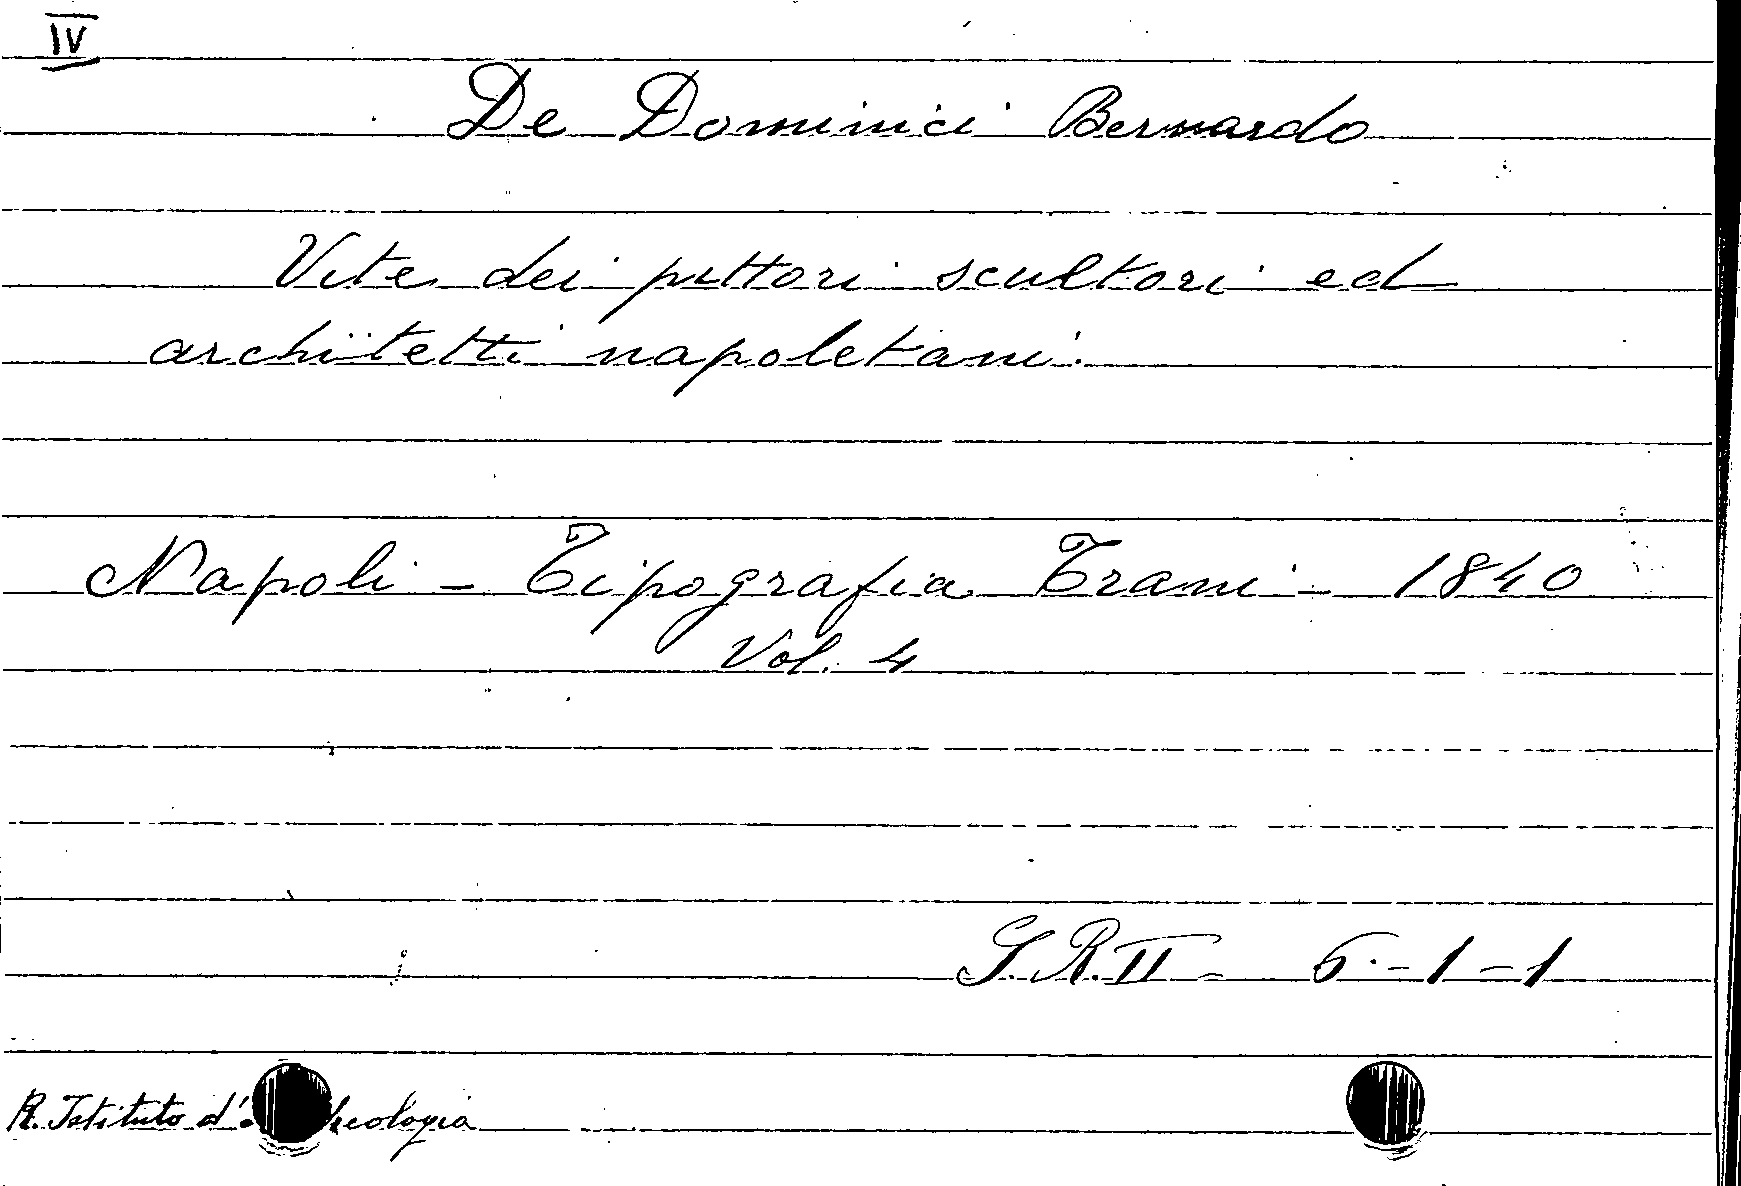 IV
De Dominici Bernardo
Vite dei pittori scultori ed
architetti napoletani.
Napoli - Tipografia Trani - 1840
Vol. 4
S. R. II - 6 - 1 - 1
R. Istituto